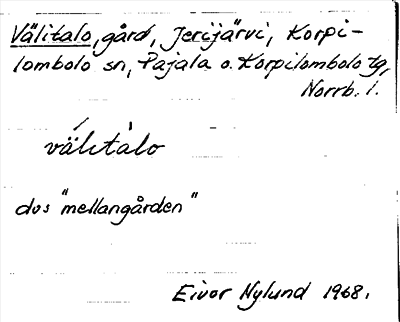 Välitalo, gård, Jerijärvi, Korpi-
lombolo sn, Pajala o. Korpilombolo tg,
Norrb. l.
vä́litàlo
dvs "mellangården"
Eivor Nylund 1968.